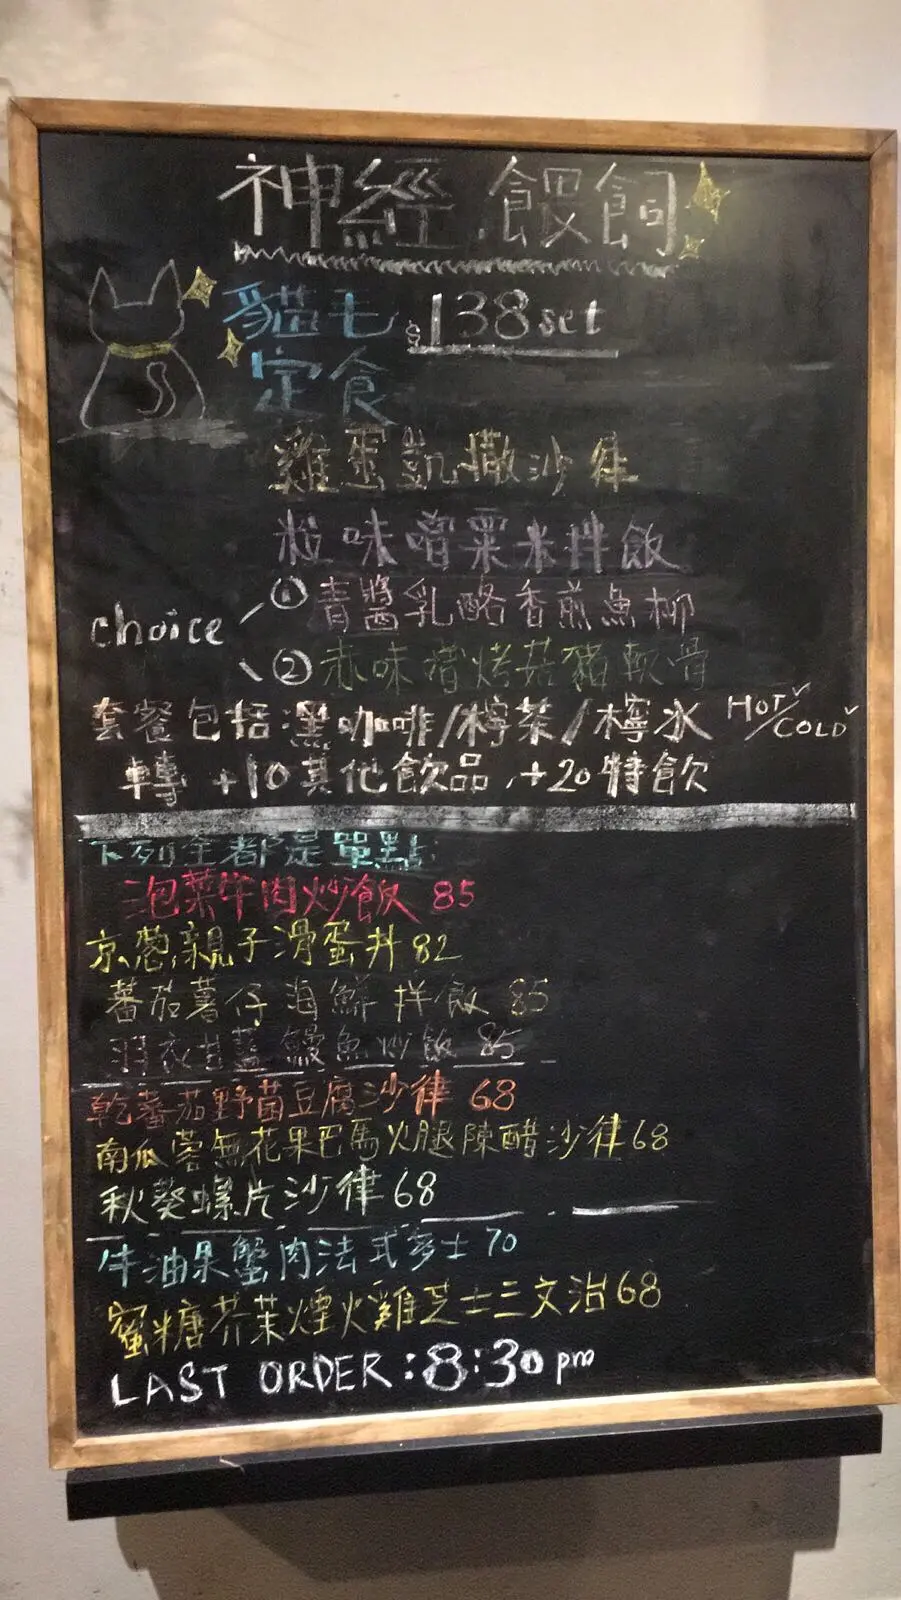 神經 餵飼
貓毛 $138 set
定食
雞蛋凱撒沙律
粒味噌粟米拌飯
choice
① 青醬乳酪香煎魚柳
② 赤味噌烤菇豬軟骨
套餐包括:黑咖啡/檸茶/檸水 HOT/COLD
轉 +10其他飲品,+20特飲
下列全都是單點:
泡菜牛肉炒飯 85
京葱親子滑蛋丼 82
蕃茄薯仔海鮮拌飯 85
羽衣甘藍鰻魚炒飯 85
乾蕃茄野菌豆腐沙律 68
南瓜蓉無花果巴馬火腿陳醋沙律 68
秋葵螺片沙律 68
牛油果蟹肉法式多士 70
蜜糖芥茉煙火雞芝士三文治 68
LAST ORDER:8:30 pm